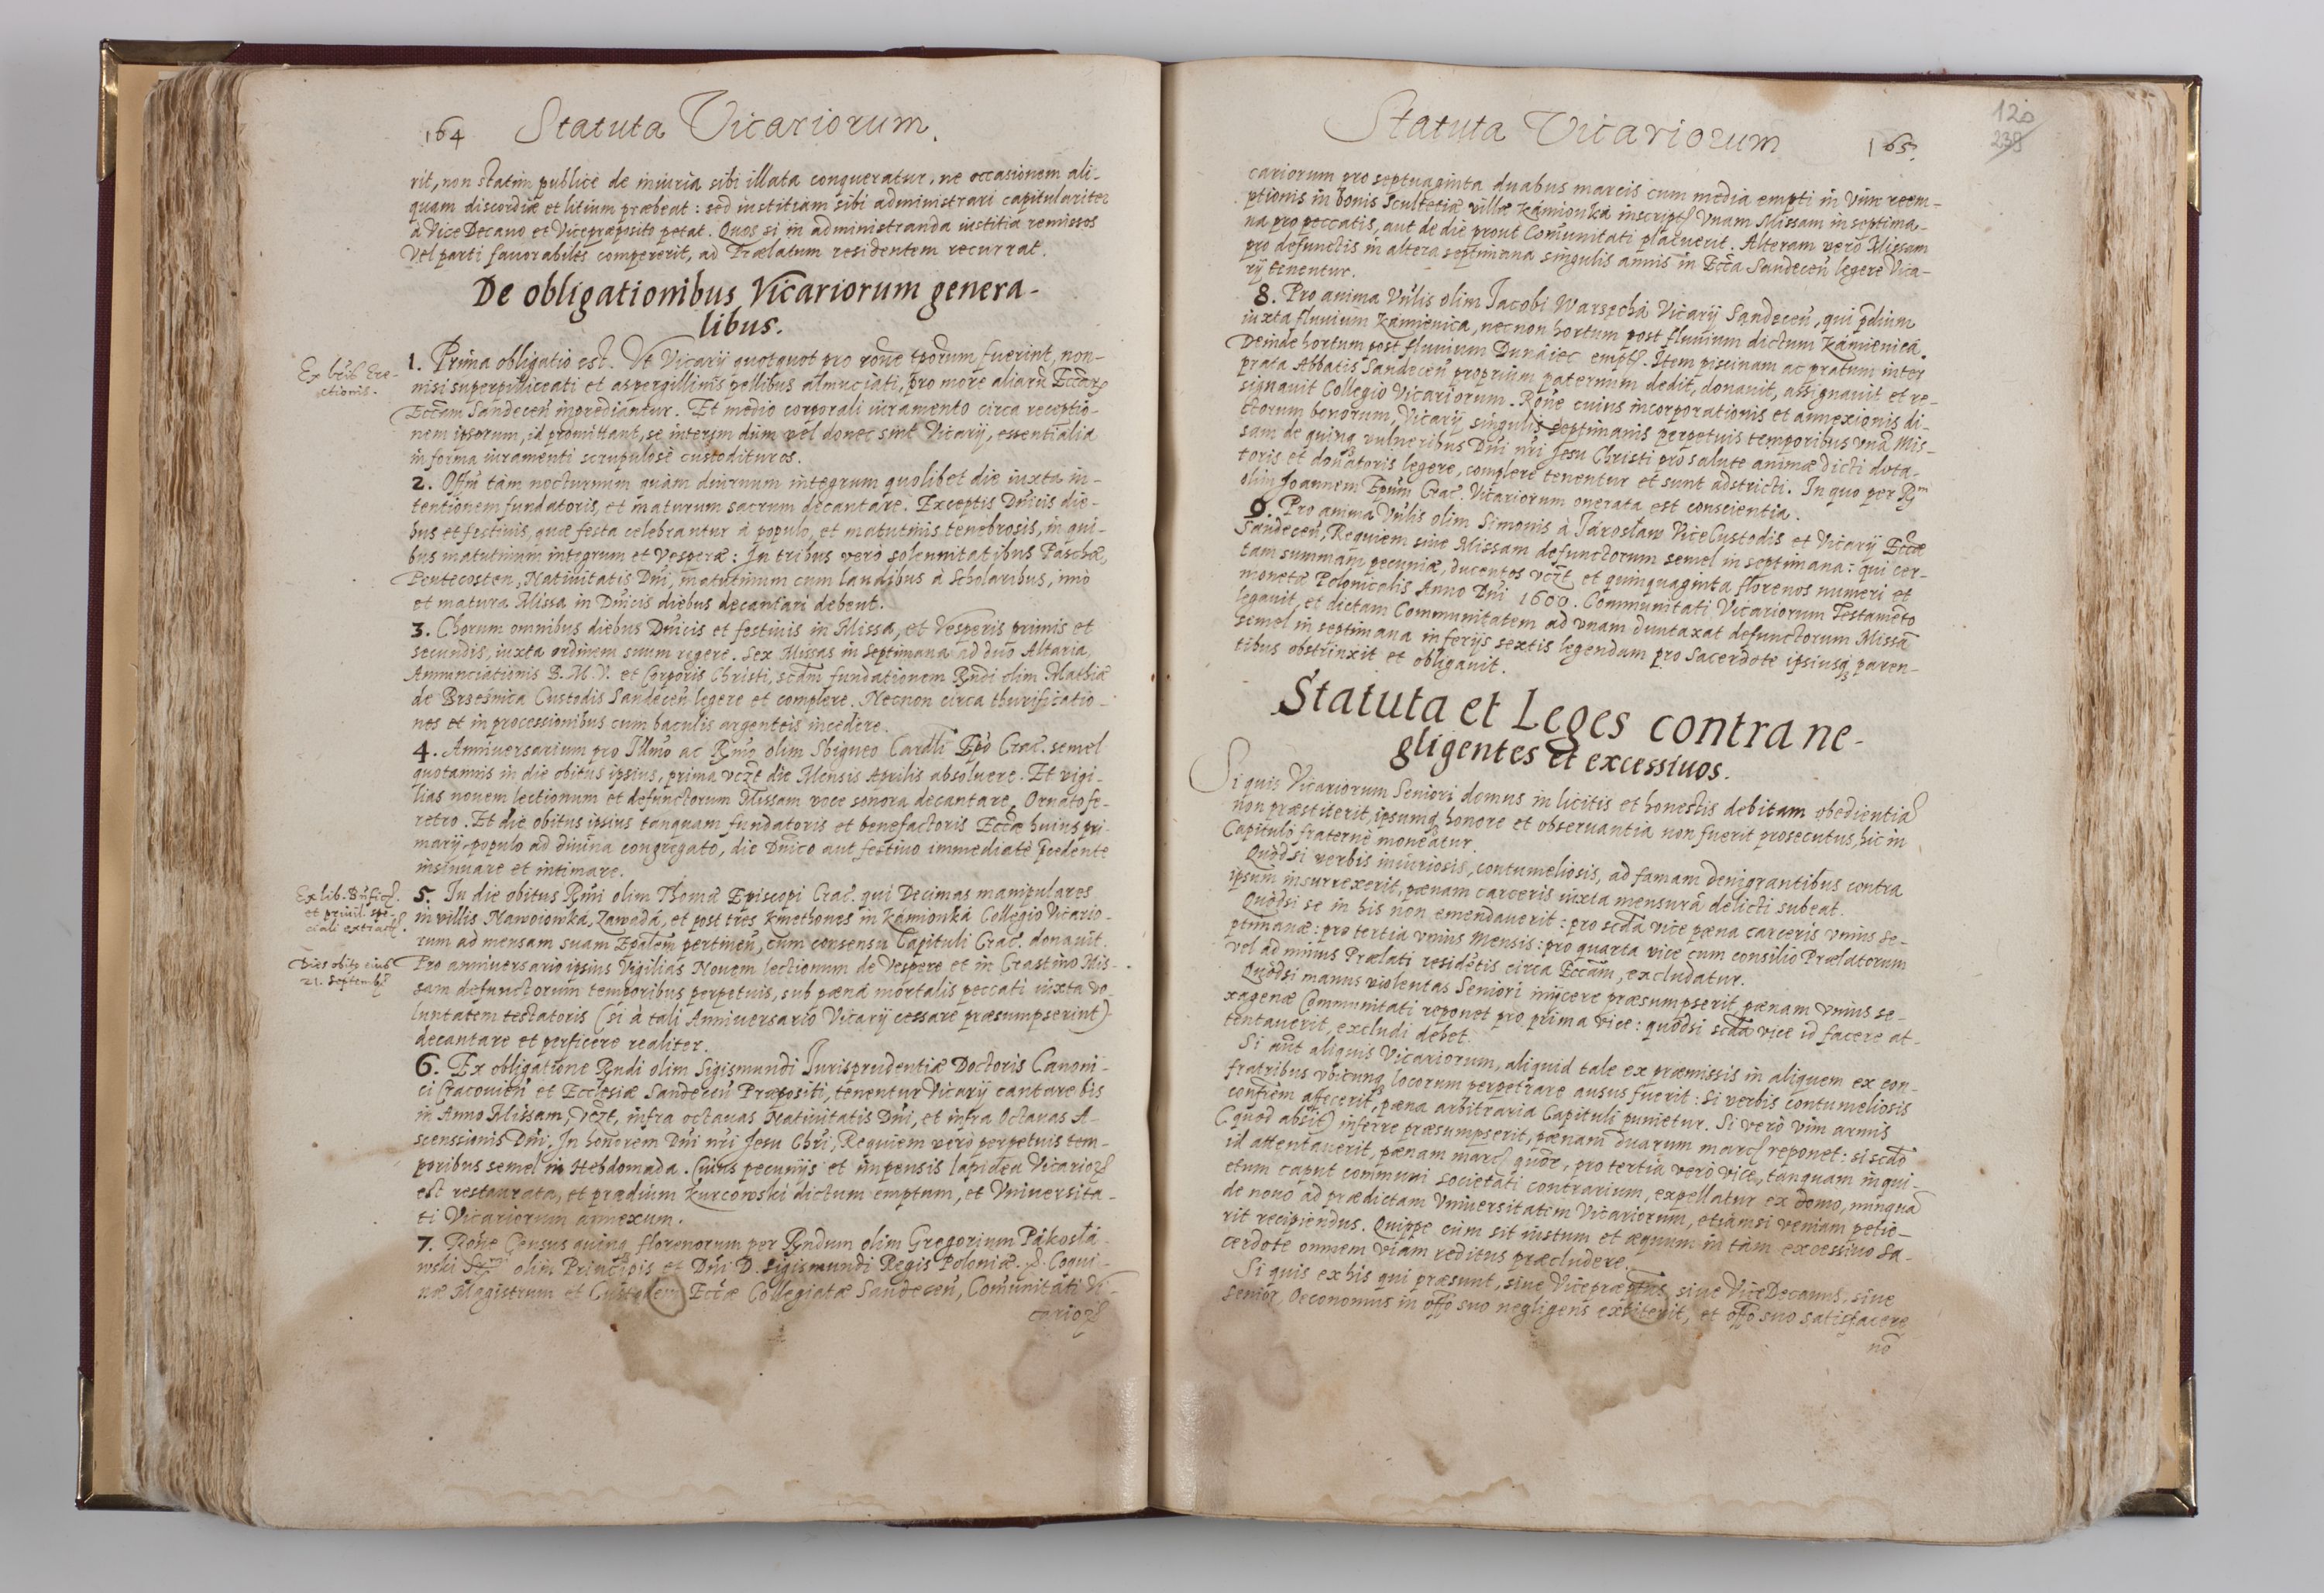 164 Statuta Vicariorum.
rit, non statim publicè de iniuria sibi illata conqueratur, ne occasionem ali-
quam discordiæ et litium præbeat: sed iustitiam sibi administrari capitulariter
à ViceDecano et Vicepræposito petat. Quos si in administranda iustitia remissos
vel parti favorabiles compererit, ad Prælatum residentem recurrat.
De obligationibus Vicariorum genera-
libus.
Ex lib. Ere-
ctionis.
1. Prima obligatio est. Vt Vicarij quotquot pro rone tporum fuerint, non-
nisi superpelliceati et aspergillinis pellibus almuciati, pro more aliarũ Eccar
Eccam Sandeceñ ingrediantur. Et medio corporali iuramento circa receptio-
nem ipsorum, id promittant, se interim dum vel donec sint Vicarij, essentialia
in forma iuramenti scrupulosè custodituros.
2. Offm tàm nocturnum quàm diurnum integrum quolibet die iuxta in-
tentionem fundatoris, et maturum sacrum decantare. Exceptis Dnicis die-
bus et festiuis, quæ festa celebrantur à populo, et matutinis tenebrosis, in qui-
bus matutinum integrum et Vesperæ: In tribus verò solennitatibus Paschæ,
Pentecosten, Natiuitatis Dni, matutinum cum laudibus à Scholaribus, imò
et matura Missa in Dnicis diebus decantari debent.
3. Chorum omnibus diebus Dnicis et festiuis in Missa, et Vesperis primis et
secundis, iuxta ordinem suum regere. Sex Missas in Septimana ad duo Altaria,
Annunciationis B.M.V. et Corporis Christi, scdam fundationem Rndi olim Mathiæ
de Brzeźnica Custodis Sandeceñ legere et complere. Necnon circa thurificatio-
nes et in processionibus cum baculis argenteis incedere.
4. Anniuersarium pro Illmo ac Rmo olim Sbigneo Cardli Epo Crac. semel
quotannis in die obitus ipsius, prima vczt die Mensis Aprilis absoluere. Et vigi-
lias nouem lectionum et defunctorum Missam voce sonora decantare, Ornato fe-
retro. Et die obitus ipsius tanquam fundatoris et benefactoris Eccæ huius pri-
marij, populo ad diuina congregato, die Dnico aut festiuo immediatè pcedente
insinuare et intimare.
Ex lib. Bnficior.
et priuil. spe-
ciali extract.
5. In die obitus Rmi olim Thomæ Episcopi Crac. qui Decimas manipulares
in villis Nawoiowká, Zawadá, et post tres kmethones in Kámionká Collegio Vicario-
rum ad mensam suam Epalem pertineñ, cum consensu Capituli Crac. donauit.
Dies obitus eius
21. Septemb.
Pro anniuersario ipsius Vigilias Nouem lectionum de Vespere et in Crastino Mis-
sam defunctorum temporibus perpetuis, sub pæna mortalis peccati iuxta vo
luntatem testatoris (si à tali Anniuersario Vicarij cessare præsumpserint)
decantare et perficere realiter.
6. Ex obligatione Rndi olim Sigismundi Iurisprudentiæ Doctoris Canoni-
ci Cracouieñ et Ecclesiæ Sandeceñ Præpositi, tenentur Vicarij cantare bis
in Anno Missam, vczt, infra octauas Natiuitatis Dni, et infra Octauas A-
scenssionis Dni. In honorem Dni nri Jesu Chri, Requiem verò perpetuis tem-
poribus semel in Hebdomada. Cuius pecunijs et impensis lapidea Vicarior
est restaurata, et prædium Kurcowski dictum emptum, et Vniuersita-
ti Vicariorum annexum.
7. Rone Census quinq florenorum per Rndum olim Gregorium Pákosłá-
wski olim Principis et Dni D. Sigismundi Regis Poloniæ. Coqui-
næ Magistrum et Custodem Eccæ Collegiatæ Sandeceñ, Comunitati Vi-
carior
Statuta Vicariorum 165.
120
238
cariorum pro septuaginta duabus marcis cum media empti in vim reem-
ptionis in bonis Scultetiæ villæ Kámionká inscript. Vnam Missam in septima-
na pro peccatis, aut de die prout Comunitati placuerit. Alteram verò Missam
pro defunctis in altera septimana singulis annis in Ecca Sandeceñ legere Vica-
rij tenentur.
8. Pro anima Vnlis olim Iacobi Warzechá Vicarij Sandeceñ, qui pdium
iuxta fluuium Kámienica, necnon hortum post fluuium dictum Kámienicá.
Deinde hortum post fluuium Dunáiec empt. Item piscinam ac pratum inter
prata Abbatis Sandeceñ proprium paternum dedit, donauit, assignauit et re-
signauit Collegio Vicariorum. Rone cuius incorporationis et annexionis di-
ctorum bonorum, Vicarij singulis septimanis perpetuis temporibus vnã Mis-
sam de quinq vulneribus Dni nri Jesu Christi pro salute animæ dicti dota-
toris et donatoris legere, complere tenentur et sunt adstricti. In quo per Rm
olim Joannem Epum Crac. Vicariorum onerata est conscientia.
9. Pro anima Vnlis olim Simonis à Járosław ViceCustodis et Vicarij Eccæ
Sandeceñ, Requiem siue Missam defunctorum semel in septimana: qui cer-
tam summam pecuniæ, ducentos vczt et quinquaginta florenos numeri et
monetæ Polonicalis Anno Dni 1600. Communitati Vicariorum Testamẽto
legauit, et dictam Communitatem ad vnam duntaxat defunctorum Missã
semel in septimana in ferijs sextis legendam pro Sacerdote ipsiusq paren-
tibus obstrinxit et obligauit.
Statuta et Leges contra ne-
gligentes et excessiuos.
Si quis Vicariorum Seniori domus in licitis et honestis debitam obedientiã
non præstiterit, ipsumq honore et obseruantia non fuerit prosecutus, hic in
Capitulo fraternè moneatur.
Quòdsi verbis iniuriosis, contumeliosis, ad famam denigrantibus contra
ipsum insurrexerit, pænam carceris iuxta mensurã delicti subeat.
Quòdsi se in his non emendauerit: pro scda vice pæna carceris vnius se-
ptimanæ: pro tertia vnius Mensis: pro quarta vice cum consilio Prælatorum
vel ad minus Prælati residẽtis circa Eccam, excludatur.
Quòdsi manus violentas Seniori inijcere præsumpserit, pænam vnius se-
xagenæ Communitati reponet pro prima vice: quòdsi scda vice id facere at-
tentauerit, excludi debet.
Si aut aliquis Vicariorum, aliquid tale ex præmissis in aliquem ex con-
fratribus vbicunq locorum perpetrare ausus fuerit: Si verbis contumeliosis
confrem affecerit, pæna arbitraria Capituli punietur. Si verò vim armis
(quod absit) inferre præsumpserit, pænam duarum marc. reponet: si scdo
id attentauerit, pænam marc. quor, pro tertia verò vice, tanquam inqui-
etum caput communi societati contrarium, expellatur ex domo, nunquã
de nouo ad prædictam Vniuersitatem Vicariorum, etiamsi veniam petie-
rit recipiendus. Quippe cùm sit iustum et æquum in tàm excessiuo Sa-
cerdote omnem viam reditus præcludere.
Si quis ex his qui præsunt, siue Vicepræptus, siue ViceDecanus, siue
Senior, Oeconomus in offo suo negligens extiterit, et offo suo satisfacere
nõ